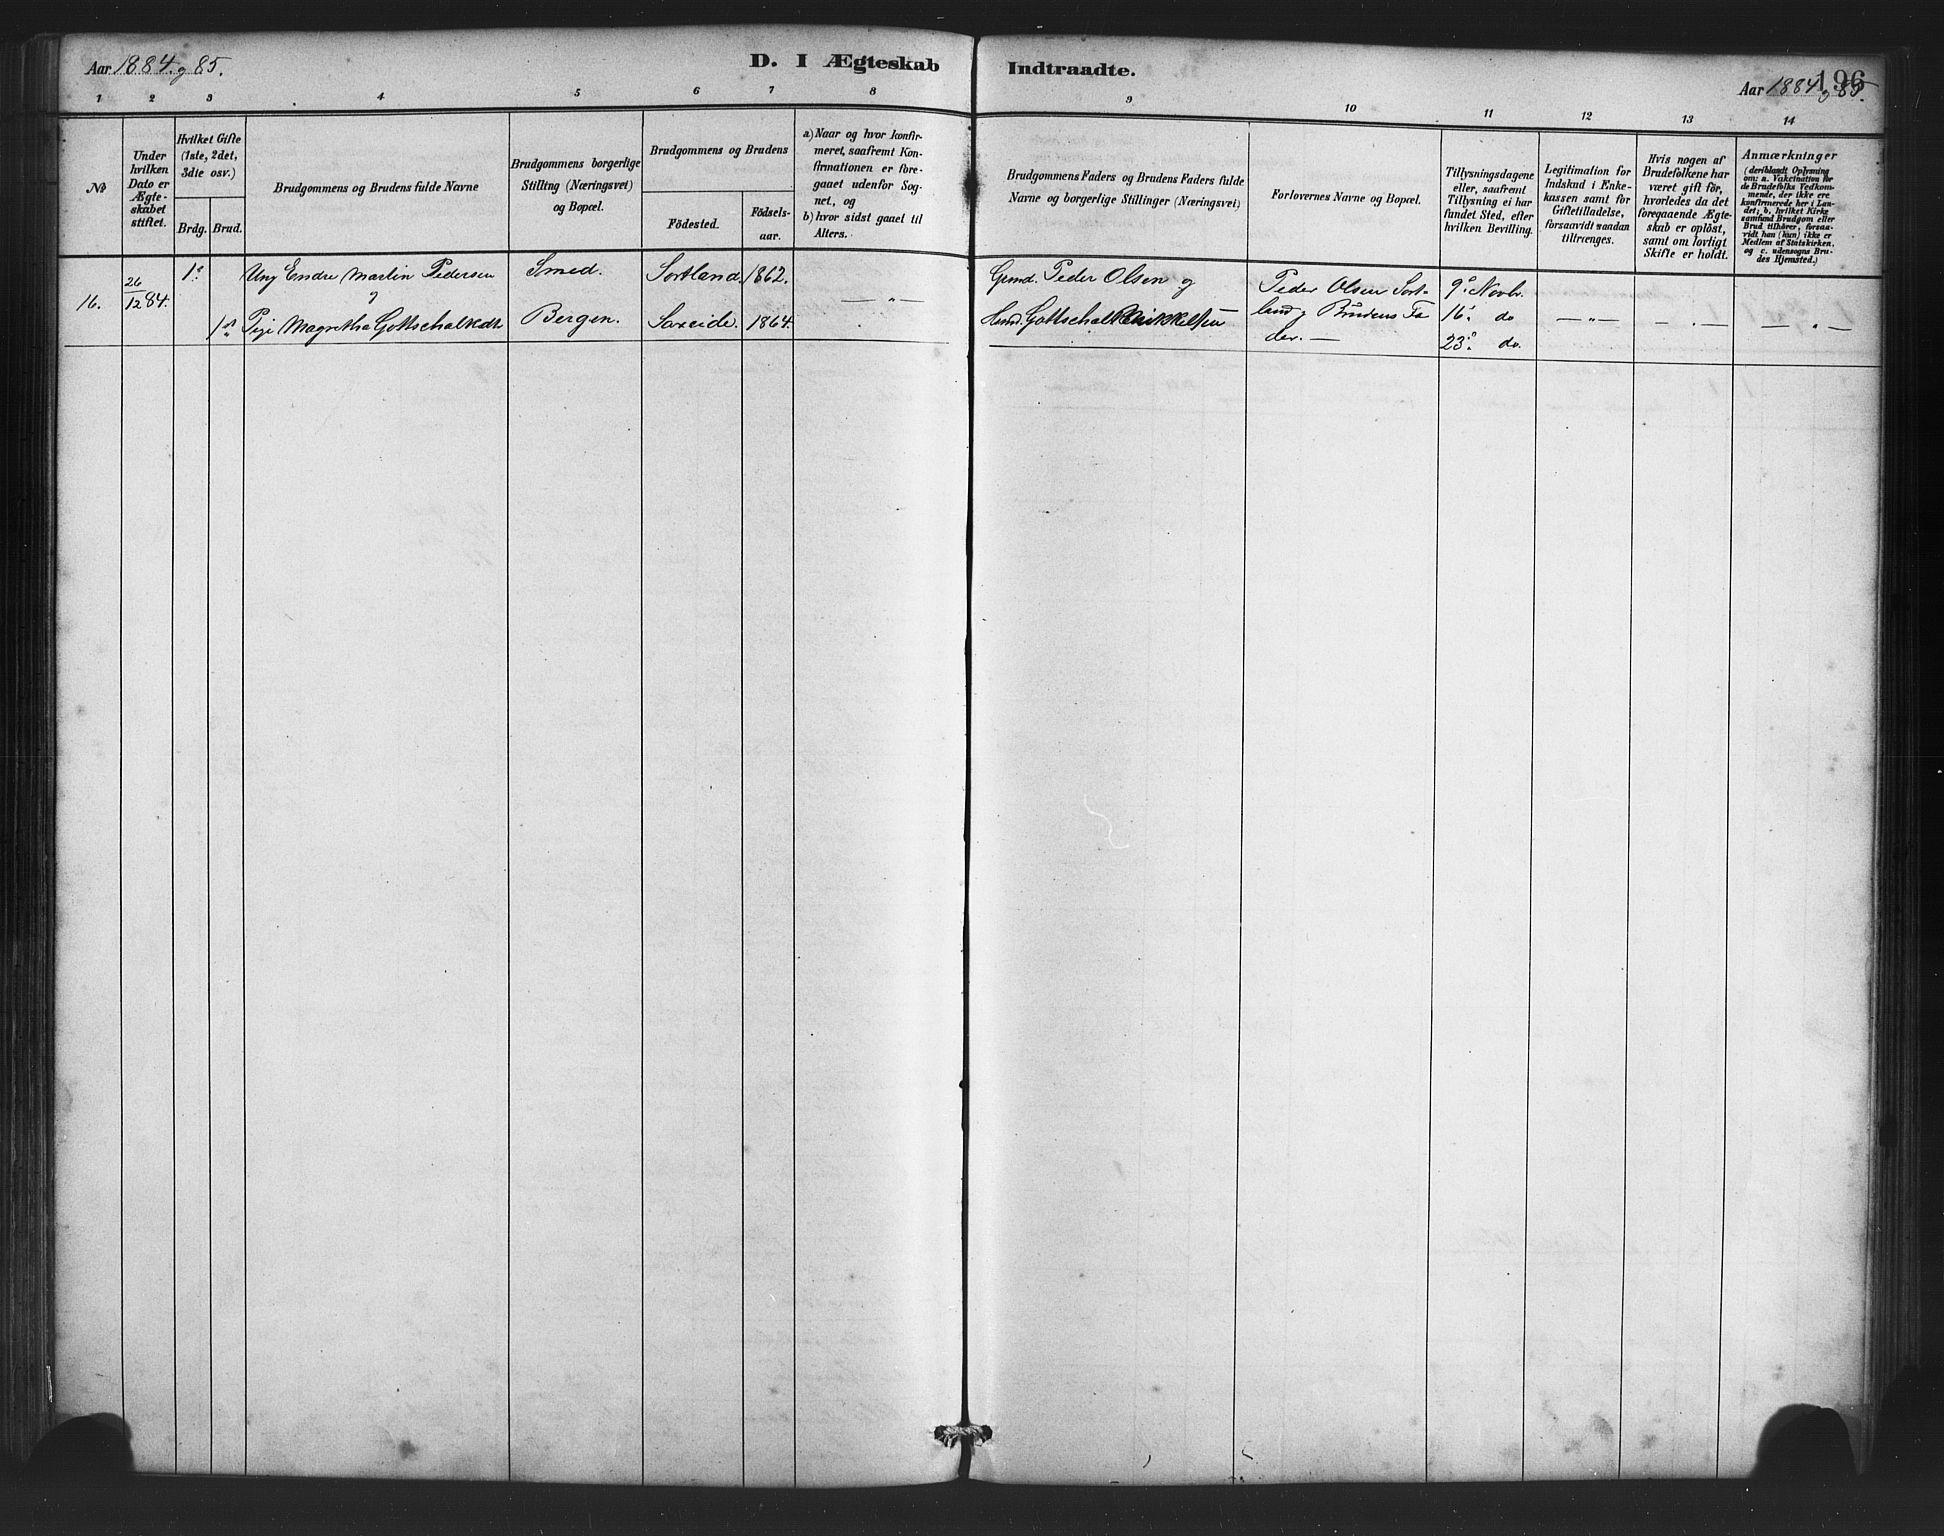 Aar 1884. og 85.
D. I Ægteskab
Indtraadte.
196
Aar 1884 og 85.
1 2 3 4 5 6 7 8
9 10 11 12 13 14
No
Under
hvilken
Dato er
Ægte-
skabet
stiftet.
Hvilket Gifte
(1ste, 2det,
3die osv.)
Brdg. Brud.
Brudgommens og Brudens fulde Navne
Brudgommens borgerlige
Stilling (Næringsvei)
og Bopæl.
Brudgommens og Brudens
Födested.
Födsels-
aar.
a) Naar og hvor konfir-
meret, saafremt Kon-
firmationen er fore-
gaaet udenfor Sog-
net, og
b) hvor sidst gaaet til
Alters.
Brudgommens Faders og Brudens Faders fulde
Navne og borgerlige Stillinger (Næringsvei)
Forlovernes Navne og Bopæl.
Tillysningsdagene
eller, saafremt
Tillysning ei har
fundet Sted, efter
hvilken Bevilling.
Legitimation for
Indskud i Enke-
kassen samt for
Giftetilladelse,
forsaavidt saadan
tiltrænges.
Hvis nogen af
Brudefolkene har
været gift för,
hvorledes da det
foregaaende Ægte-
skab er oplöst,
samt om lovligt
Skifte er holdt.
Anmærkninger
(deriblandt Oplysning
om: a. Vakcination for
de Brudefolks Vedkom-
mende, der ikke ere
konfirmerede her i Lan-
det; b, hvilket Kirke
samfund Brudgom eller
Brud tilhörer, forsaa-
vidt han (hun) ikke er
Medlem af Statskirken.
og c. udensogns Bru-
des Hjemsted.)
16.
26/12 84.
1ste
Ung Endre Martin Pedersen
og
1ste Pige Magretha Gottschalksdt
Smed.
Bergen.
Sortland. 1862.
Saxeide. 1864.
— „ —
Grmd. Peder Olsen og
Hmd. Gottschalk Mikkelsen
Peder Olsen Sort-
land og Brudens Fa
der. —
9de Novbr.
16de do
23de do.
— „ —
— „ —
— „ —